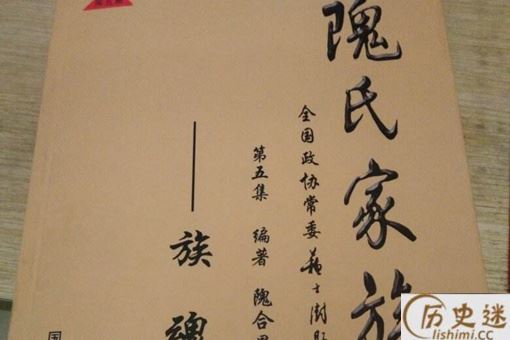 隗氏家族
全国政协常委
第五集 编著 隗合
——族魂
国
历史迷
lishimi.CC